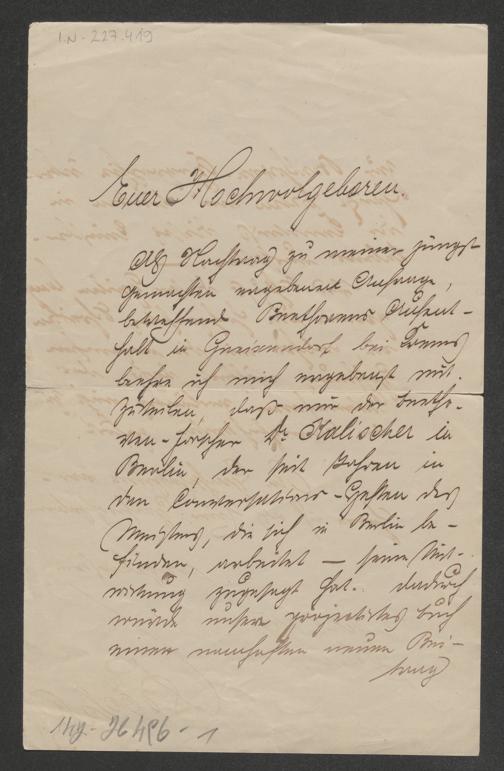 I.N-227.419
Euer Hochwolgeboren.
Als Nachtrag zu meiner jüngst
gemachten ergebenen Anfrage,
betreffend Beethovens Aufent-
halt in Gneixendorf bei Krems
beehre ich mich ergebenst mit-
zuteilen, daß mir der Beetho-
ven-Forscher Dr. Kalischer in
Berlin, der seit Jahren in
den Conversations-Heften des
Meisters, die sich in Berlin be-
finden, arbeitet — seine Mit-
wirkung zugesagt hat. Dadurch
würde unser projectirtes Buch
einen namhaften neuen Bei-
trag